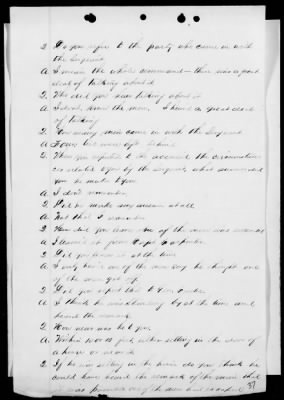 Q Do you refer to the party who came in with
the Sergeant
A I mean the whole command – there was a great
deal of talking about it
Q Who did you hear talking about it
A I don't know the men. I heard a great deal
of talking
Q How many men came in with the Sergeant
A Four two were left behind
Q When you reported to the accused the circumstances
as related to you by the Sergeant, what
you he make to you
A I don't remember
Q Did he make any answer at all
A Not that I remember
Q How did you learn one of the men was wounded
A I learned it from
Q Did you learn it at the time
A I only heard one of the men say he thought one
of the men got
Q Did you report that to
A I think he was standing by at the time and
heard the remark
Q How near was he to you
A Within yards just sitting in the door of
a house or
Q If he was sitting in the house do you think he
could have heard the remark of the man that
one of the men had
37